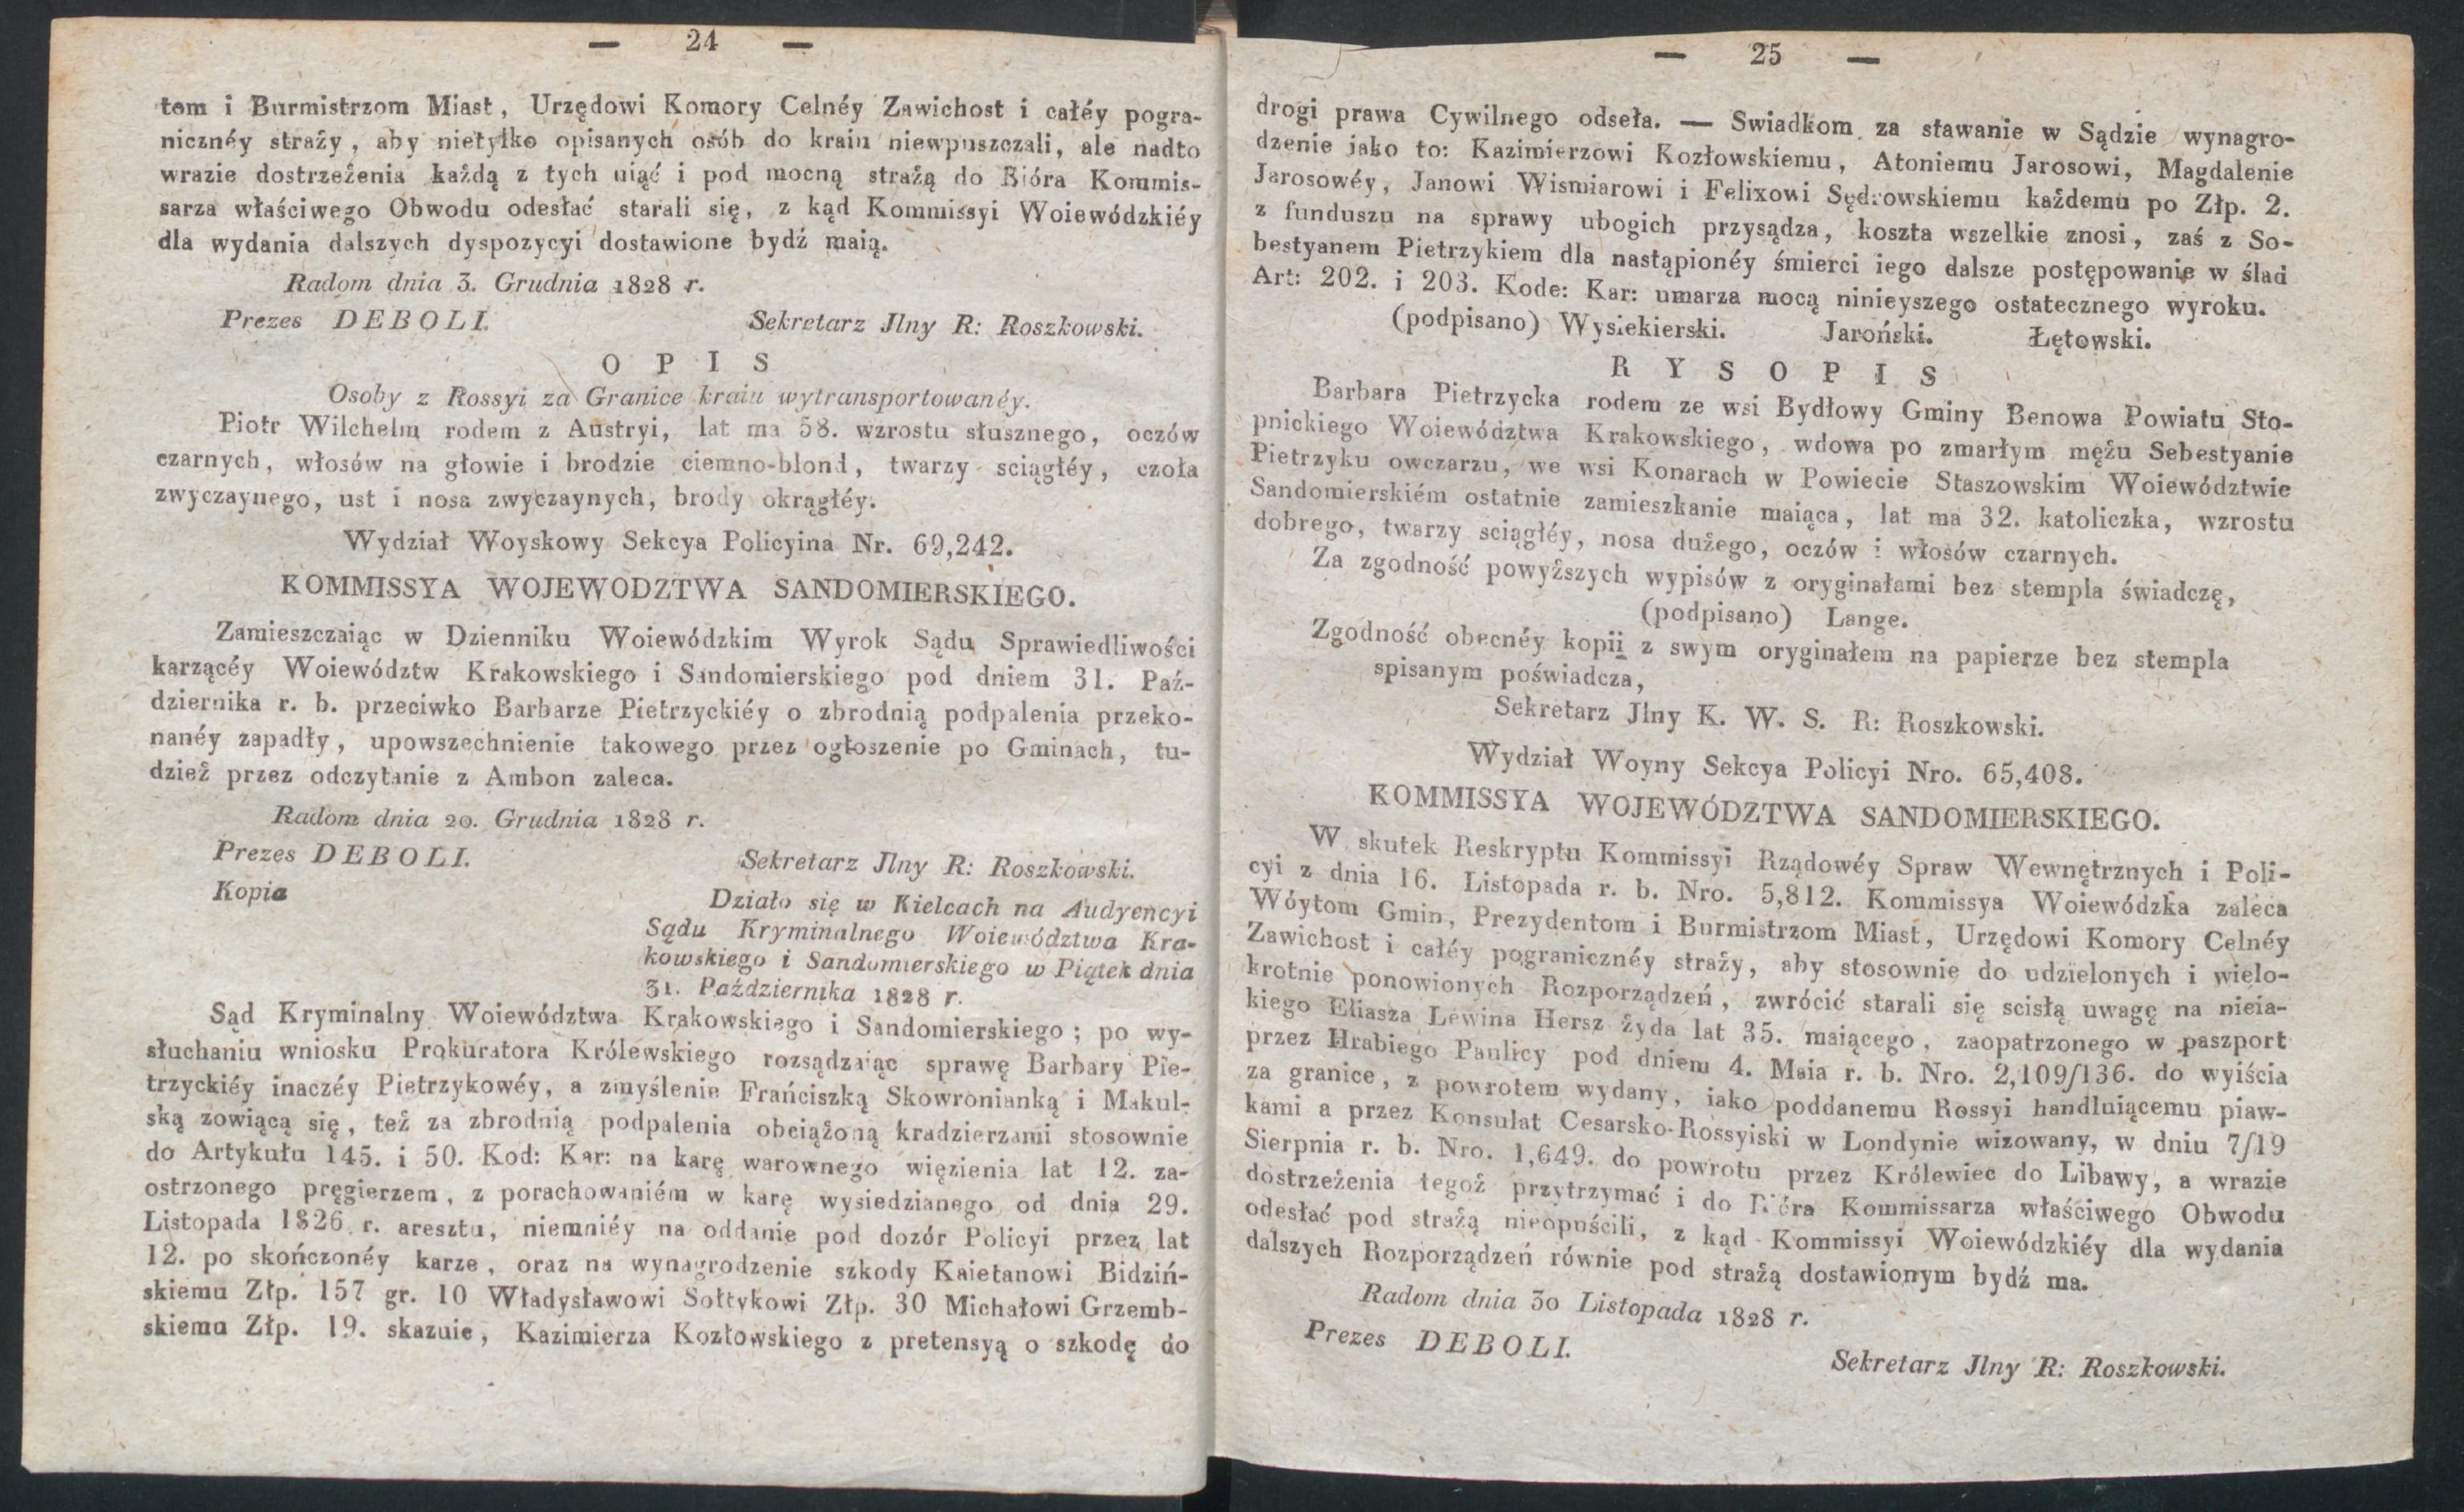 — 24 —
tom i Burmistrzom Miast, Urzędowi Komory Celnéy Zawichost i całéy pogra-
nicznéy straży, aby nietylko opisanych osób do kraiu niewpuszczali, ale nadto
wrazie dostrzeżenia każdą z tych uiąć i pod mocną strażą do Bióra Kommis-
sarza właściwego Obwodu odesłać starali się, z kąd Kommissyi Woiewódzkiéy
dla wydania dalszych dyspozycyi dostawione bydź maią.
Radom dnia 3. Grudnia 1828 r.
Prezes DEBOLI. Sekretarz Jlny R: Roszkowski.
OPIS
Osoby z Rossyi za Granice kraiu wytransportowanéy.
Piotr Wilchelm rodem z Austryi, lat ma 58. wzrostu słusznego, oczów
czarnych, włosów na głowie i brodzie ciemno-blond, twarzy sciągłéy, czoła
zwyczaynego, ust i nosa zwyczaynych, brody okrągłéy.
Wydział Woyskowy Sekcya Policyina Nr. 69,242.
KOMMISSYA WOJEWODZTWA SANDOMIERSKIEGO.
Zamieszczaiąc w Dzienniku Woiewódzkim Wyrok Sądu Sprawiedliwości
karzącéy Woiewództw Krakowskiego i Sandomierskiego pod dniem 31. Paź-
dziernika r. b. przeciwko Barbarze Pietrzyckiéy o zbrodnią podpalenia przeko-
nanéy zapadły, upowszechnienie takowego przez ogłoszenie po Gminach, tu-
dzież przez odczytanie z Ambon zaleca.
Radom dnia 20. Grudnia 1828 r.
Prezes DEBOLI. Sekretarz Jlny R: Roszkowski.
Kopia
Działo się w Kielcach na Audyencyi
Sądu Kryminalnego Woiewództwa Kra-
kowskiego i Sandomierskiego w Piątek dnia
31. Października 1828 r.
Sąd Kryminalny Woiewództwa Krakowskiego i Sandomierskiego; po wy-
słuchaniu wniosku Prokuratora Królewskiego rozsądzaiąc sprawę Barbary Pie-
trzyckiéy inaczéy Pietrzykowéy, a zmyślenie Frańciszką Skowronianką i Makul-
ską zowiącą się, też za zbrodnią podpalenia obciążoną kradzierzami stosownie
do Artykułu 145. i 50. Kod: Kar: na karę warownego więzienia lat 12. za-
ostrzonego pręgierzem, z porachowaniém w karę wysiedzianego od dnia 29.
Listopada 1826 r. aresztu, niemniéy na oddanie pod dozór Policyi przez lat
12. po skończonéy karze, oraz na wynagrodzenie szkody Kaietanowi Bidziń-
skiemu Złp. 157 gr. 10 Władysławowi Sołtykowi Złp. 30 Michałowi Grzemb-
skiemu Złp. 19. skazuie, Kazimierza Kozłowskiego z pretensyą o szkodę do
— 25 —
drogi prawa Cywilnego odseła. — Swiadkom za stawanie w Sądzie wynagro-
dzenie jako to: Kazimierzowi Kozłowskiemu, Atoniemu Jarosowi, Magdalenie
Jarosowéy, Janowi Wismiarowi i Felixowi Sędrowskiemu każdemu po Złp. 2.
z funduszu na sprawy ubogich przysądza, koszta wszelkie znosi, zaś z So-
bestyanem Pietrzykiem dla nastąpionéy śmierci iego dalsze postępowanie w ślad
Art: 202. i 203. Kode: Kar: umarza mocą ninieyszego ostatecznego wyroku.
(podpisano) Wysiekierski. Jaroński. Łętowski.
RYSOPIS
Barbara Pietrzycka rodem ze wsi Bydłowy Gminy Benowa Powiatu Sto-
pnickiego Woiewództwa Krakowskiego, wdowa po zmarłym mężu Sebestyanie
Pietrzyku owczarzu, we wsi Konarach w Powiecie Staszowskim Woiewództwie
Sandomierskiém ostatnie zamieszkanie maiąca, lat ma 32. katoliczka, wzrostu
dobrego, twarzy sciągłéy, nosa dużego, oczów i włosów czarnych.
Za zgodność powyższych wypisów z oryginałami bez stempla świadczę,
(podpisano) Lange.
Zgodność obecnéy kopii z swym oryginałem na papierze bez stempla
spisanym poświadcza,
Sekretarz Jlny K. W. S. R: Roszkowski.
Wydział Woyny Sekcya Policyi Nro. 65,408.
KOMMISSYA WOJEWÓDZTWA SANDOMIERSKIEGO.
W skutek Reskryptu Kommissyi Rządowéy Spraw Wewnętrznych i Poli-
cyi z dnia 16. Listopada r. b. Nro. 5,812. Kommissya Woiewódzka zaleca
Wóytom Gmin, Prezydentom i Burmistrzom Miast, Urzędowi Komory Celnéy
Zawichost i całéy pogranicznéy straży, aby stosownie do udzielonych i wielo-
krotnie ponowionych Rozporządzeń, zwrócić starali się scisłą uwagę na nieia-
kiego Eliasza Lewina Hersz żyda lat 35. maiącego, zaopatrzonego w paszport
przez Hrabiego Paulicy pod dniem 4. Maia r. b. Nro. 2,109/136. do wyiścia
za granice, z powrotem wydany, iako poddanemu Rossyi handluiącemu piaw-
kami a przez Konsulat Cesarsko-Rossyiski w Londynie wizowany, w dniu 7/19
Sierpnia r. b. Nro. 1,649. do powrotu przez Królewiec do Libawy, a wrazie
dostrzeżenia tegoż przytrzymać i do Bióra Kommissarza właściwego Obwodu
odesłać pod strażą nieopuścili, z kąd Kommissyi Woiewódzkiéy dla wydania
dalszych Rozporządzeń równie pod strażą dostawionym bydź ma.
Radom dnia 30 Listopada 1828 r.
Prezes DEBOLI.
Sekretarz Jlny R: Roszkowski.